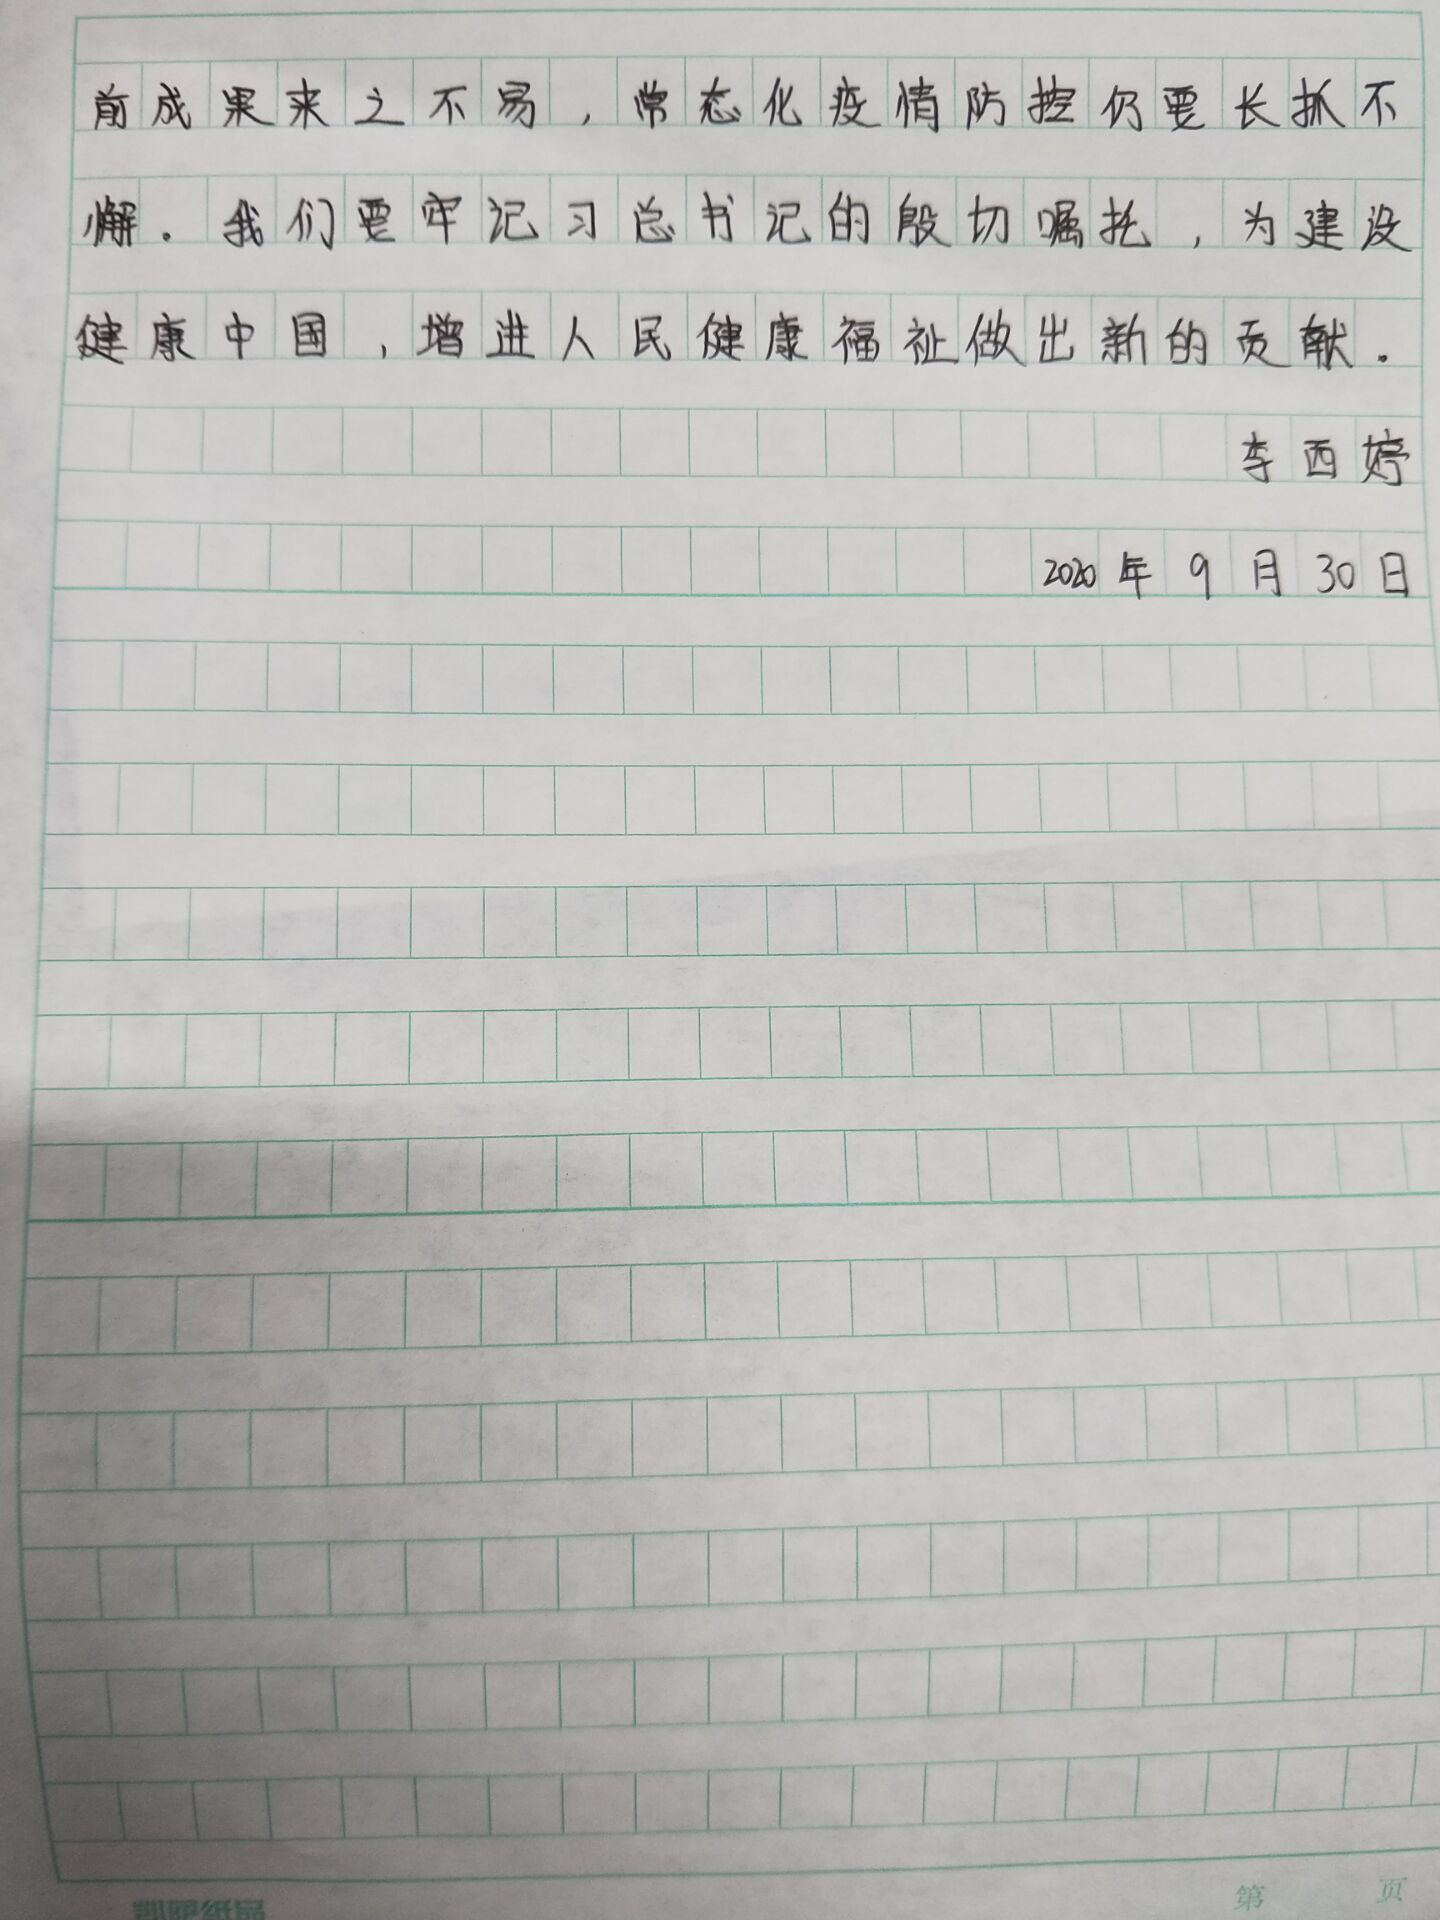 前成果来之不易，常态化疫情防控仍要长抓不
懈.我们要牢记习总书记的殷切嘱托，为建设
健康中国，增进人民健康福祉做出新的贡献.
李西婷
2020年9月30日
第 页